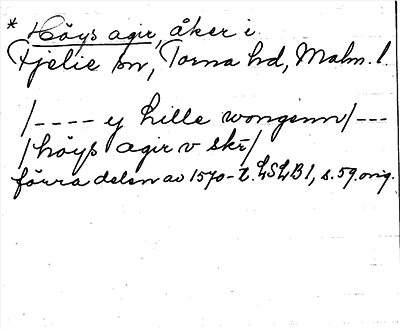 * Höys agir, åker i
Fjelie sn, Torna hd, Malm. l.
/---- y lille wongenn/---
/höys agir v skr/
förra delen av 1570-t. LSLB1, s. 59. orig.